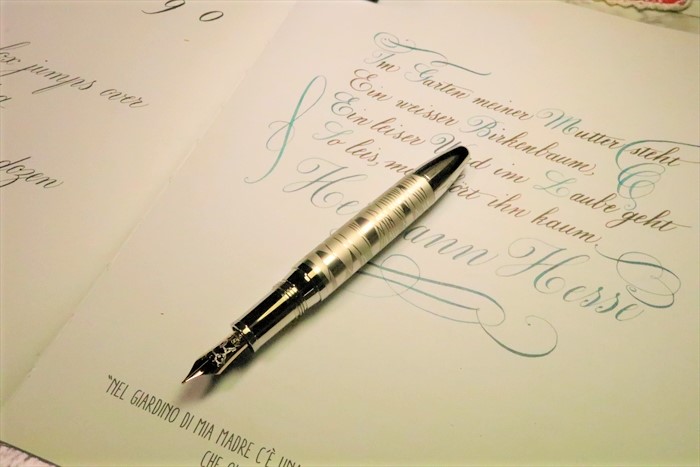 9 0
fox jumps over
dozen
Im Garten meiner Mutter steht
Ein weisser Birkenbaum,
Ein leiser Wind im Laube geht
So leis, man hört ihn kaum.
Hermann Hesse
"NEL GIARDINO DI MIA MADRE C'È UNA
CHE